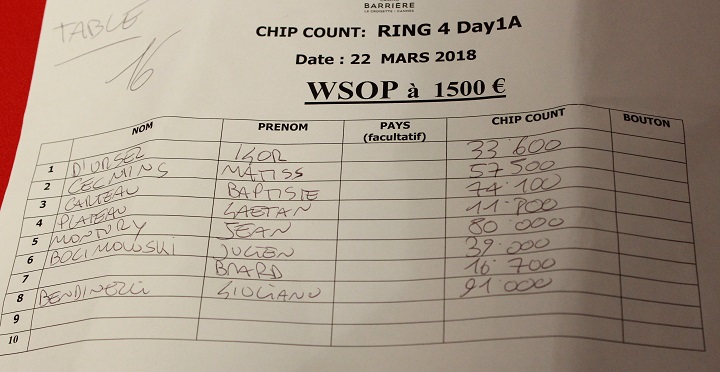 BARRIÈRE
LE CROISETTE - CANNES
TABLE
16
CHIP COUNT: RING 4 Day1A
Date : 22 MARS 2018
WSOP à 1500 €
NOM PRENOM PAYS (facultatif) CHIP COUNT BOUTON
1 D'URSEL IGOR 33'600
2 CECMINS MATISS 57'500
3 CARTEAU BAPTISTE 74'100
4 PLATEAU GAETAN
5 MONTURY JEAN 80'000
6 BOCIMOLOSKI JULIEN 39'000
7 BIARD 16'700
8 BENDINELLI GIULIANO 91'000
9
10